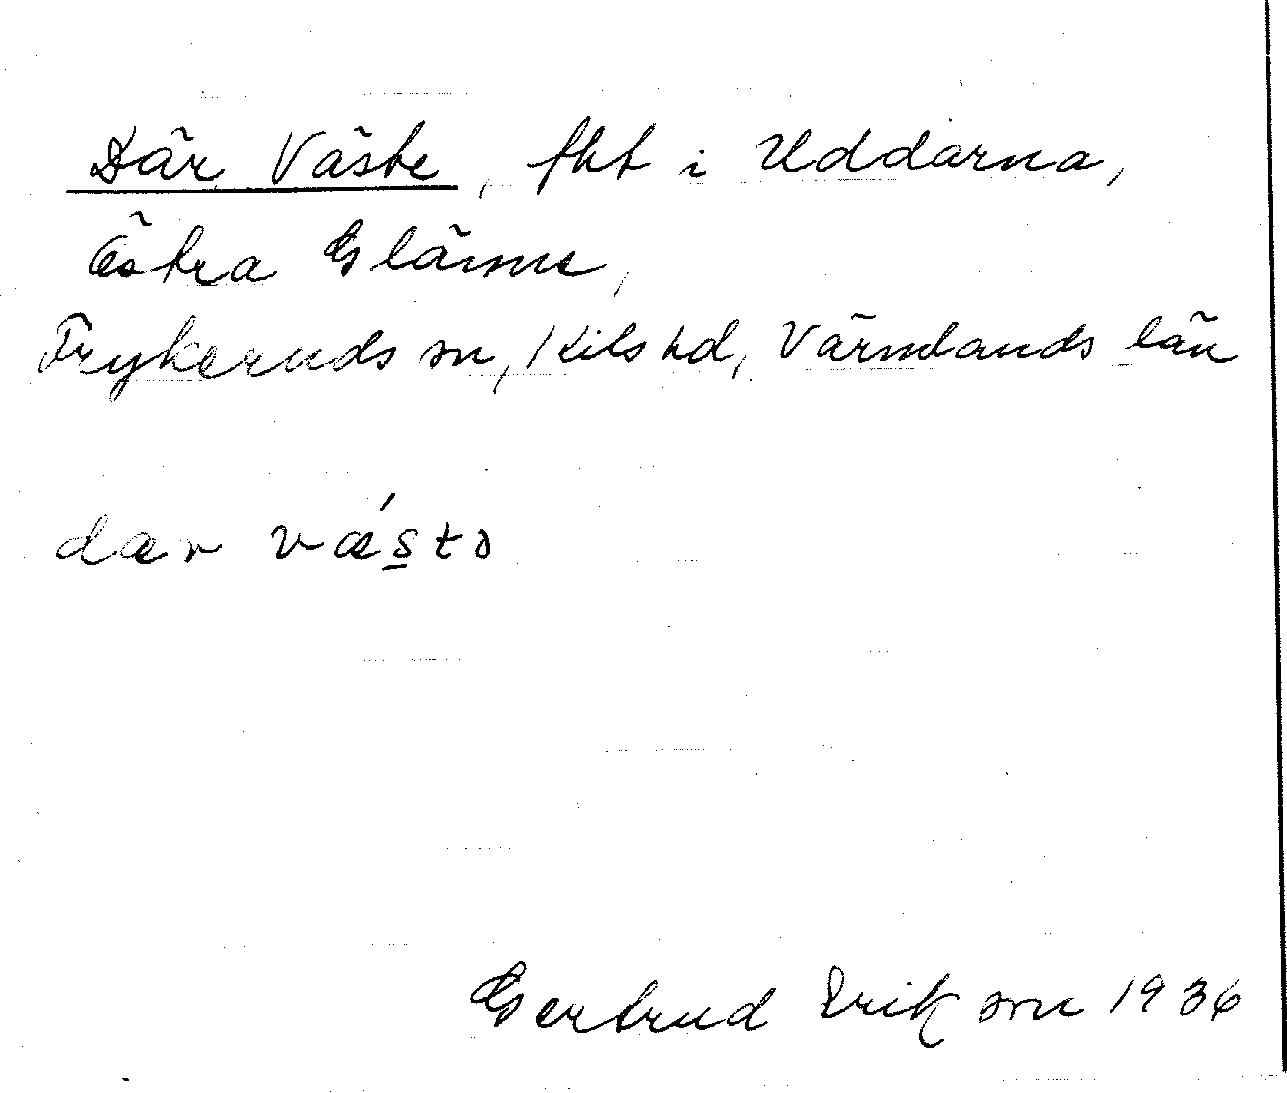 Där Väste, fht i Uddarna,
Östra Glänne,
Frykeruds sn, Kils hd, Värmlands län
dær væ´s̲tə
Gertrud Erikson 1936